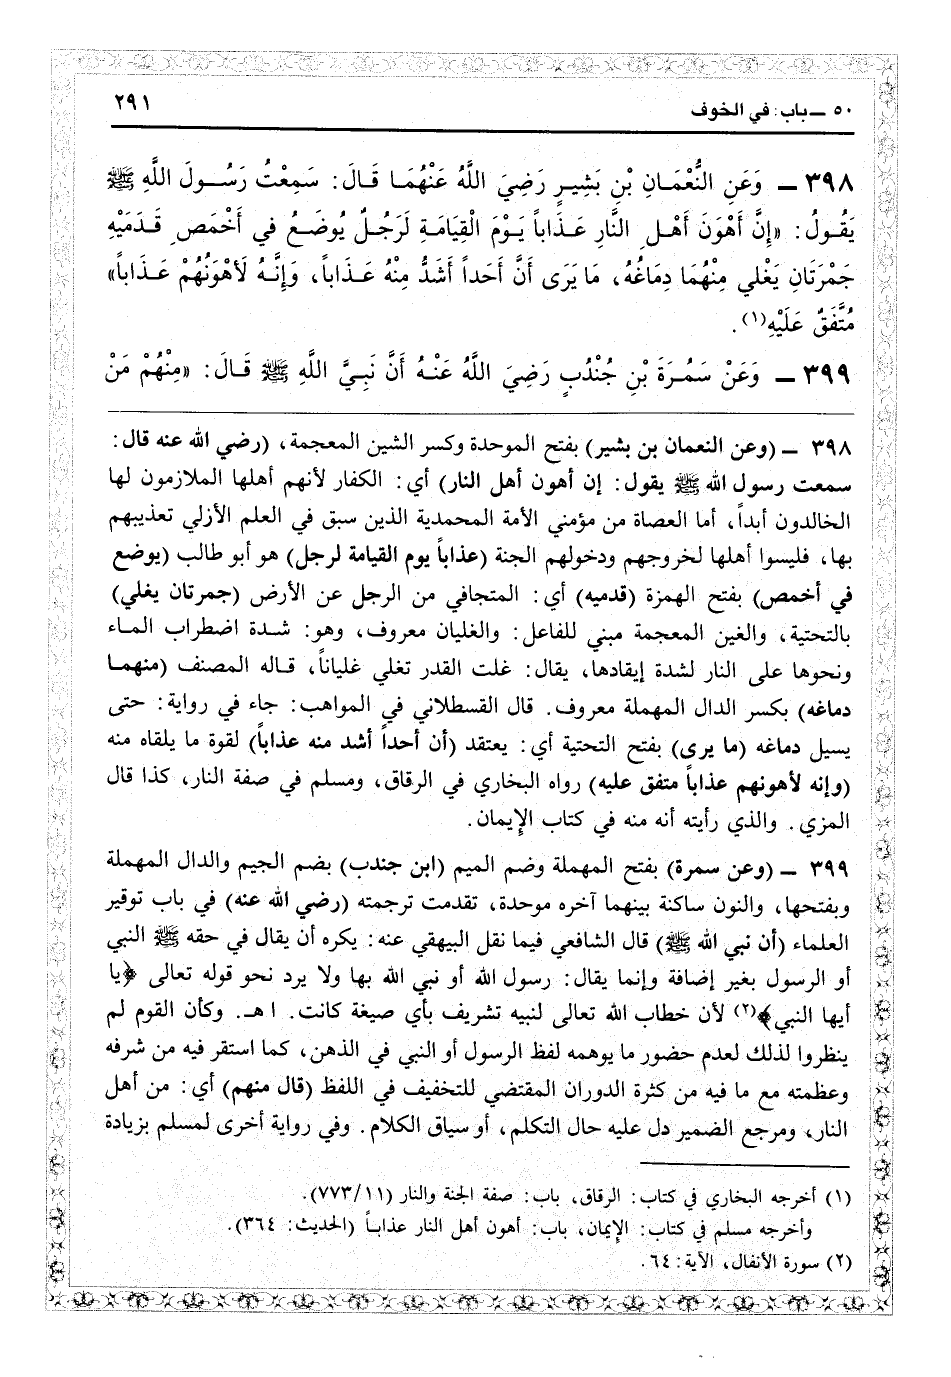 ٥٠ ــ باب: في الخوف
٢٩١
٣٩٨ ــ وَعَنِ النُّعْمَانِ بْنِ بَشِيرٍ رَضِيَ اللَّهُ عَنْهُمَا قَالَ: سَمِعْتُ رَسُولَ اللَّهِ ﷺ
يَقُولُ: «إِنَّ أَهْوَنَ أَهْلِ النَّارِ عَذَاباً يَوْمَ الْقِيَامَةِ لَرَجُلٌ يُوضَعُ فِي أَخْمَصِ قَدَمَيْهِ
جَمْرَتَانِ يَغْلي مِنْهُمَا دِمَاغُهُ، مَا يَرَى أَنَّ أَحَداً أَشَدُّ مِنْهُ عَذَاباً، وَإِنَّهُ لَأَهْوَنُهُمْ عَذَاباً»
مُتَّفَقٌ عَلَيْهِ(١).
٣٩٩ ــ وَعَنْ سَمُرَةَ بْنِ جُنْدُبٍ رَضِيَ اللَّهُ عَنْهُ أَنَّ نَبِيَّ اللَّهِ ﷺ قَالَ: «مِنْهُمْ مَنْ
٣٩٨ ــ (وعن النعمان بن بشير) بفتح الموحدة وكسر الشين المعجمة، (رضي الله عنه قال:
سمعت رسول الله ﷺ يقول: إن أهون أهل النار) أي: الكفار لأنهم أهلها الملازمون لها
الخالدون أبداً، أما العصاة من مؤمني الأمة المحمدية الذين سبق في العلم الأزلي تعذيبهم
بها، فليسوا أهلها لخروجهم ودخولهم الجنة (عذاباً يوم القيامة لرجل) هو أبو طالب (يوضع
في أخمص) بفتح الهمزة (قدميه) أي: المتجافي من الرجل عن الأرض (جمرتان يغلي)
بالتحتية، والغين المعجمة مبني للفاعل: والغليان معروف، وهو: شدة اضطراب الماء
ونحوها على النار لشدة إيقادها، يقال: غلت القدر تغلي غلياناً، قاله المصنف (منهما
دماغه) بكسر الدال المهملة معروف. قال القسطلاني في المواهب: جاء في رواية: حتى
يسيل دماغه (ما يرى) بفتح التحتية أي: يعتقد (أن أحداً أشد منه عذاباً) لقوة ما يلقاه منه
(وإنه لأهونهم عذاباً متفق عليه) رواه البخاري في الرقاق، ومسلم في صفة النار، كذا قال
المزي. والذي رأيته أنه منه في كتاب الإِيمان.
٣٩٩ ــ (وعن سمرة) بفتح المهملة وضم الميم (ابن جندب) بضم الجيم والدال المهملة
وبفتحها، والنون ساكنة بينهما آخره موحدة، تقدمت ترجمته (رضي الله عنه) في باب توقير
العلماء (أن نبي الله ﷺ) قال الشافعي فيما نقل البيهقي عنه: يكره أن يقال في حقه ﷺ النبي
أو الرسول بغير إضافة وإنما يقال: رسول الله أو نبي الله بها ولا يرد نحو قوله تعالى ﴿يا
أيها النبي﴾(٢) لأن خطاب الله تعالى لنبيه تشريف بأي صيغة كانت. ا هـ. وكأن القوم لم
ينظروا لذلك لعدم حضور ما يوهمه لفظ الرسول أو النبي في الذهن، كما استقر فيه من شرفه
وعظمته مع ما فيه من كثرة الدوران المقتضي للتخفيف في اللفظ (قال منهم) أي: من أهل
النار، ومرجع الضمير دل عليه حال التكلم، أو سياق الكلام. وفي رواية أخرى لمسلم بزيادة
(١) أخرجه البخاري في كتاب: الرقاق، باب: صفة الجنة والنار (٧٧٣/١١).
وأخرجه مسلم في كتاب: الإِيمان، باب: أهون أهل النار عذاباً (الحديث: ٣٦٤).
(٢) سورة الأنفال، الآية: ٦٤.